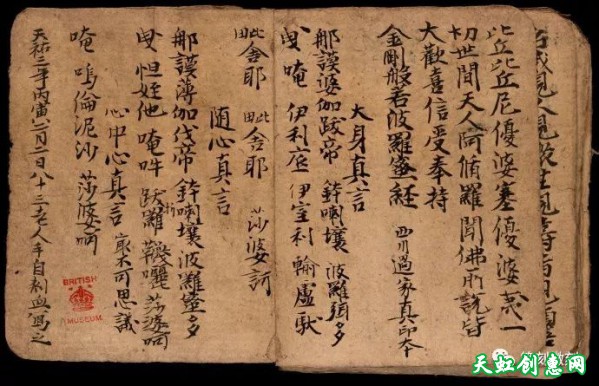 比丘比丘尼優婆塞優婆夷一
切世間天人阿脩羅聞佛所說皆
大歡喜信受奉持
金剛般若波羅蜜經 西川過家真印本
大身真言
那謨婆伽跋帝 鉢喇壤 波羅弭多
曳 唵 伊利底 伊室利 輸盧馱
毗舍耶 毗舍耶 莎婆訶
隨心真言
那謨薄伽伐帝 鉢喇壤波羅蜜多
曳 怛姪他 唵 吽 跋羅 韈囇 莎婆訶
心中心真言 最不可思議
唵 嗚倫泥沙 莎婆訶
天祐三年丙寅二月二日八十三老人手自刺血寫之
BRITISH
MUSEUM
天虹创意网